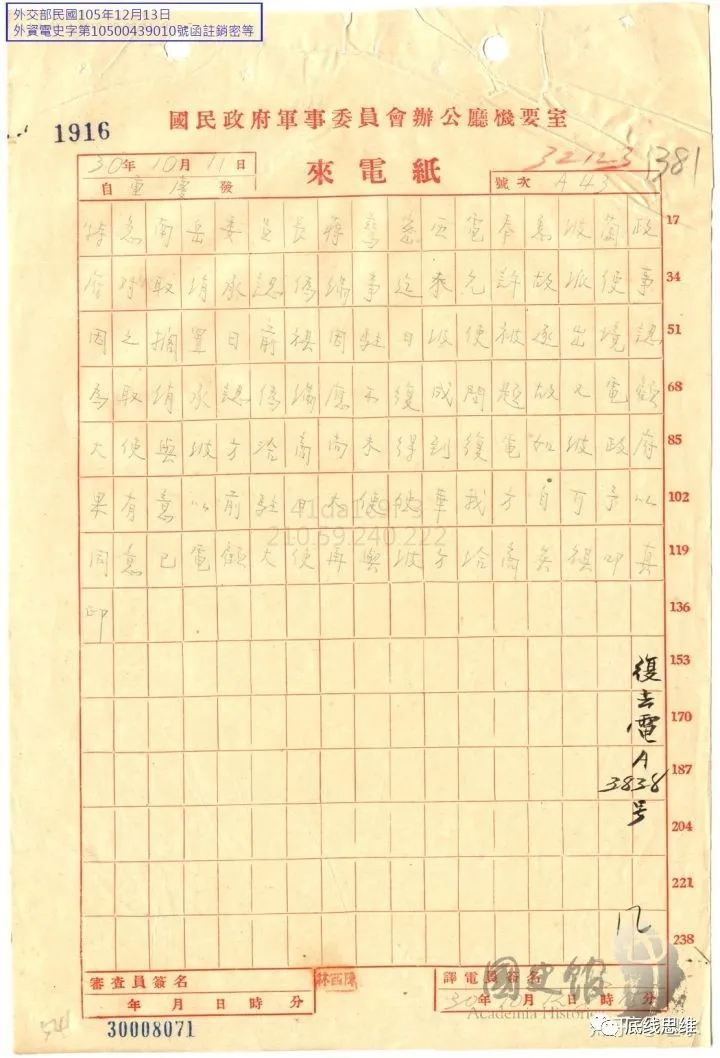 外交部民國105年12月13日
外資電史字第10500439010號函註銷密等
國民政府軍事委員會辦公廳機要室
1916
30年10月11日
來電紙
32123
381
自重慶發
號次 A43
特急南岳委員長蔣鑒密西電奉悉波蘭政 17
府對取銷承認偽滿事迄未允許故派使事 34
因之擱置日前報因駐日波使被逐出境認 51
為取銷承認偽滿應不復成問題故又電顧 68
大使與波方洽商尚未得到復電如波政府 85
果有意以前駐日大使使華我方自可予以 102
同意已電顧大使再與波方洽商矣祺叩真 119
印 136
153
170
187
204
221
238
復去電A3838号
41da1c9f-3
210.69.240.222
審查員簽名
年 月 日 時 分
陳西林
譯電員簽名
30年10月12日 時 分
30008071
541
國史館
Academia Historica
底线思维